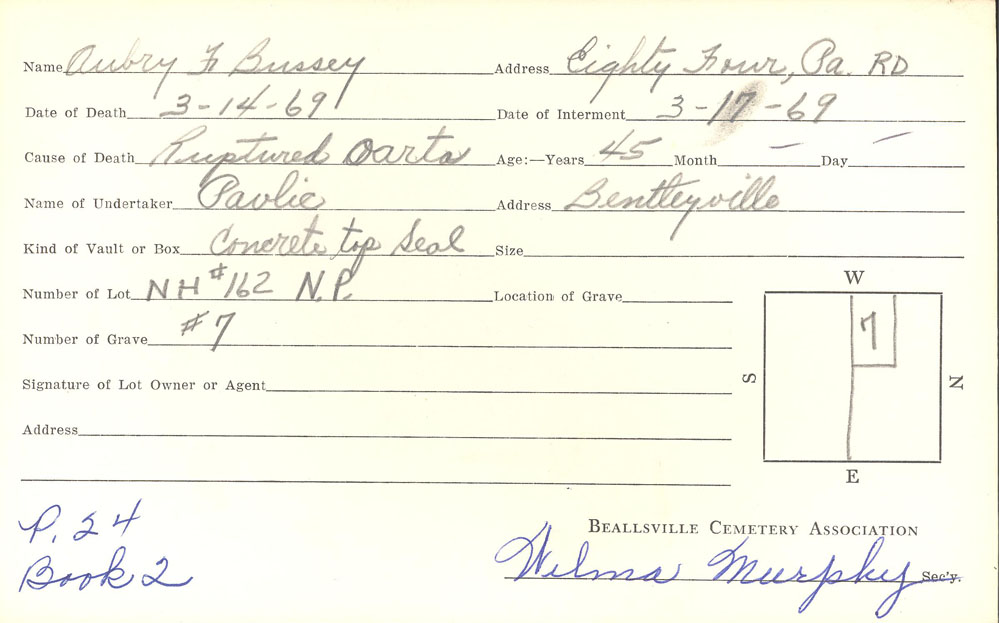 Name Aubry F Bussey Address Eighty Four, Pa. RD
Date of Death 3-14-69 Date of Interment 3-17-69
Cause of Death Ruptured Oarta Age:—Years 45 Month — Day —
Name of Undertaker Pavlic Address Bentleyville
Kind of Vault or Box Concrete top Seal Size
Number of Lot NH #162 N.P. Location of Grave
Number of Grave #7
Signature of Lot Owner or Agent
Address
W
7
S
N
E
P. 24
Book 2
Beallsville Cemetery Association
Wilma Murphy Sec'y.